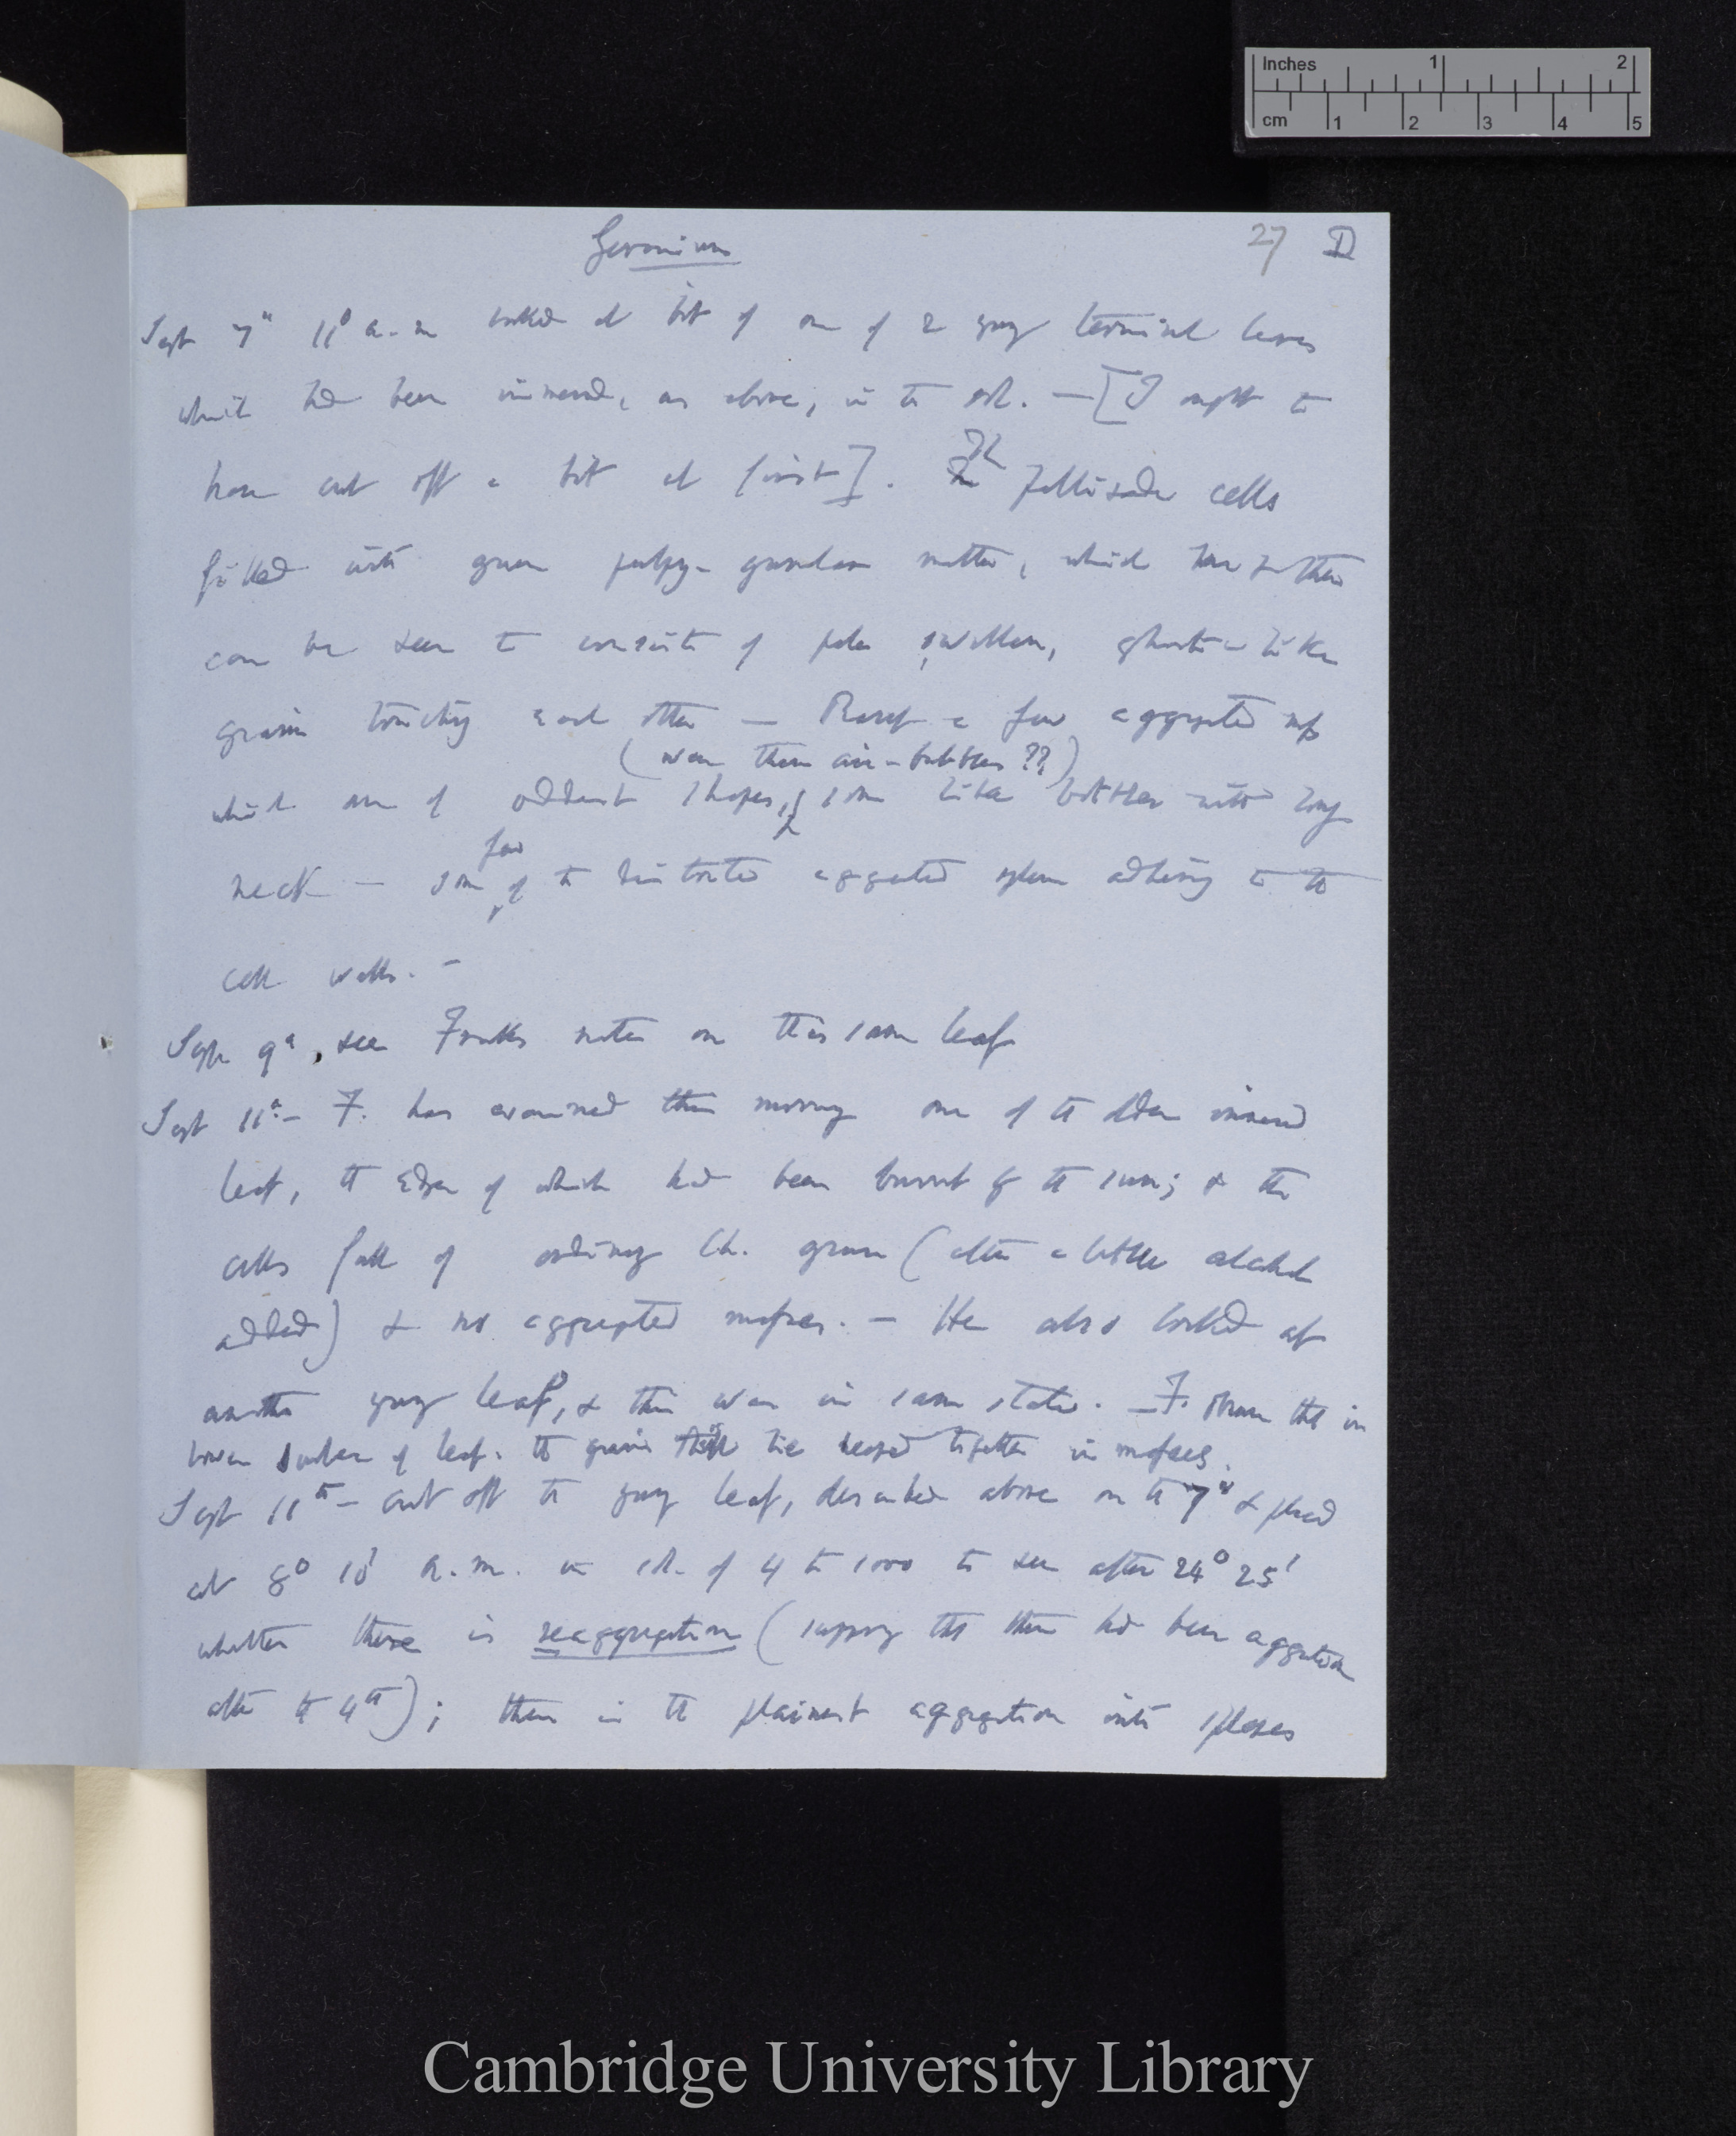 Inches 1 2
cm 1 2 3 4 5
Geranium
27 D
Sept 7th 11° a.m looked at bit of one of 2 young terminal leaves
which had been immersed, as above, in the sol. — [I ought to
have cut off a bit at first]. The Pallisade cells
filled with green pulpy-granular matter, which here & there
can be seen to consist of pale swollen, ghost-like
grains touching each other — Rarely a few aggregated
(were these air-bubbles ??)
which are of oddest shapes, some like bottles with long
neck — some few of the distorted aggregated adhering to the
cell walls. —
Sept 9th, see Franks notes on this same leaf
Sept 11th — F. has examined this morning one of the older immersed
leaf, the edges of which had been burnt by the sun; & the
cells full of ordinary Ch. grains (after a little alcohol
added) & no aggregated masses. — He also looked at
another young leaf, & this was in same state. — F. shows that in
lower surface of leaf. the grains lie heaped together in masses.
Sept 11th — cut off the young leaf, described above on the 7th & placed
at 8° 10' a.m. in sol. of 4 to 1000 to see after 24° 25'
whether there is reaggregation (supposing that there had been aggregation
after the 4th); there is the plainest aggregation into spheres
Cambridge University Library